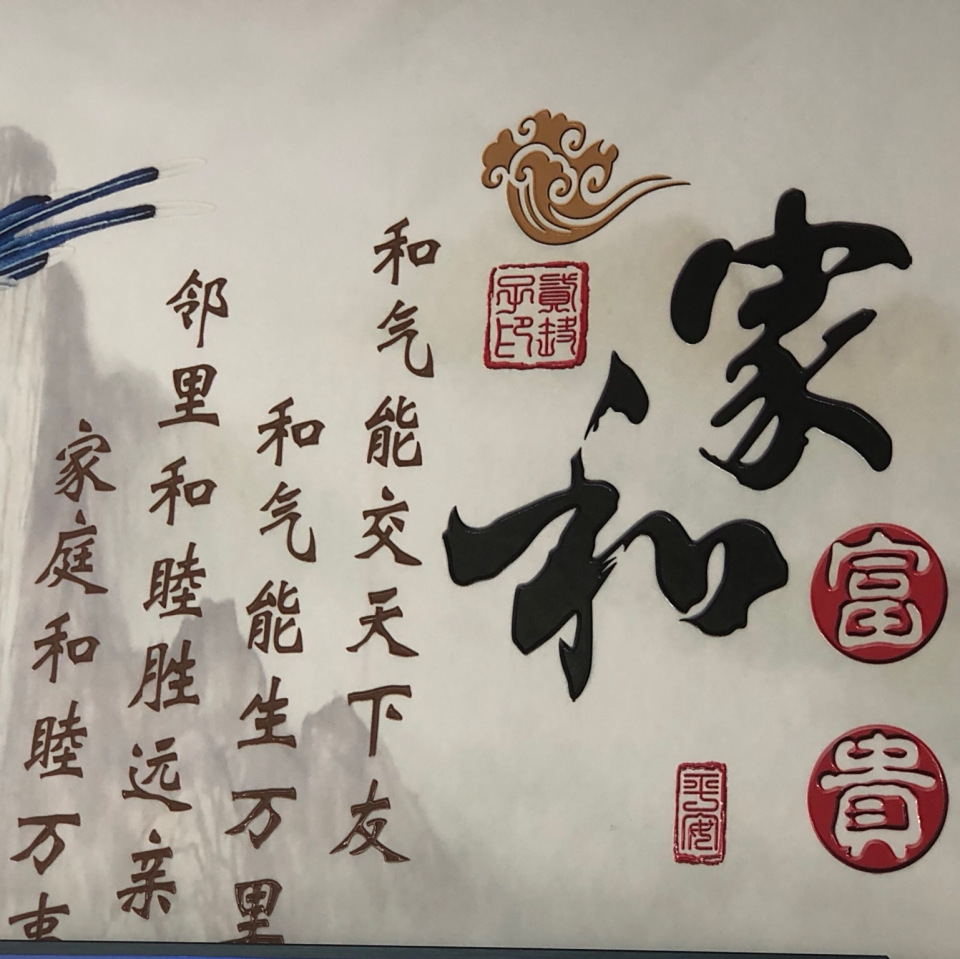 家和
富
貴
平安
和气能交天下友
和气能生万里
邻里和睦胜远亲
家庭和睦万